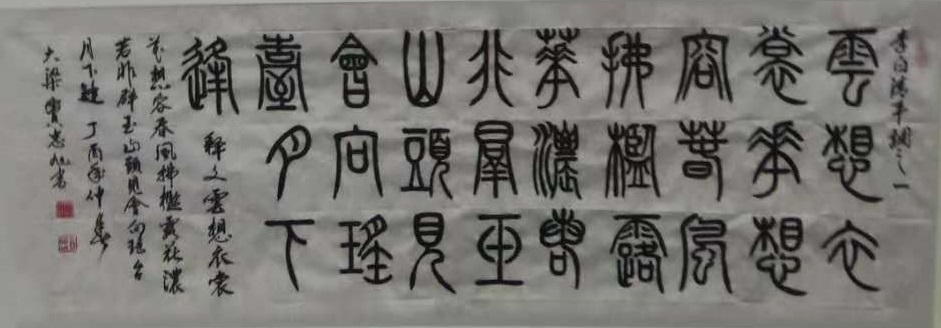 李白清平調之一
雲想衣
裳華想
容春風
拂檻露
華濃若
非群玉
山頭見
會向瑤
臺月下
逢
釋文雲想衣裳
花想容春風拂檻露花濃
若非群玉山頭見會向瑶台
月下逢 丁酉年仲
大梁 志 書